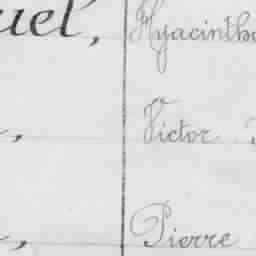 uel, Hyacinth
Victor
Pierre